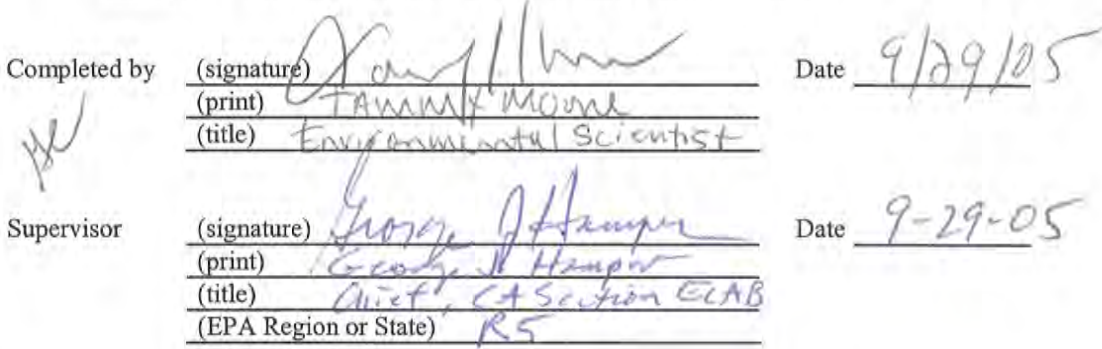 Completed by (signature) Date 9/29/05
(print) TAMMY MOORE
(title) Environmental Scientist
Supervisor (signature) George J Hamper Date 9-29-05
(print) George J Hamper
(title) Chief, CA Section ECAB
(EPA Region or State) R5